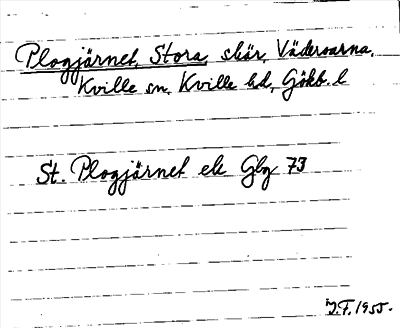 Plogjärnet, Stora, skär, Väderöarna,
Kville sn, Kville hd, Götb. l
St. Plogjärnet ek Gbg 73
J.F. 1955.